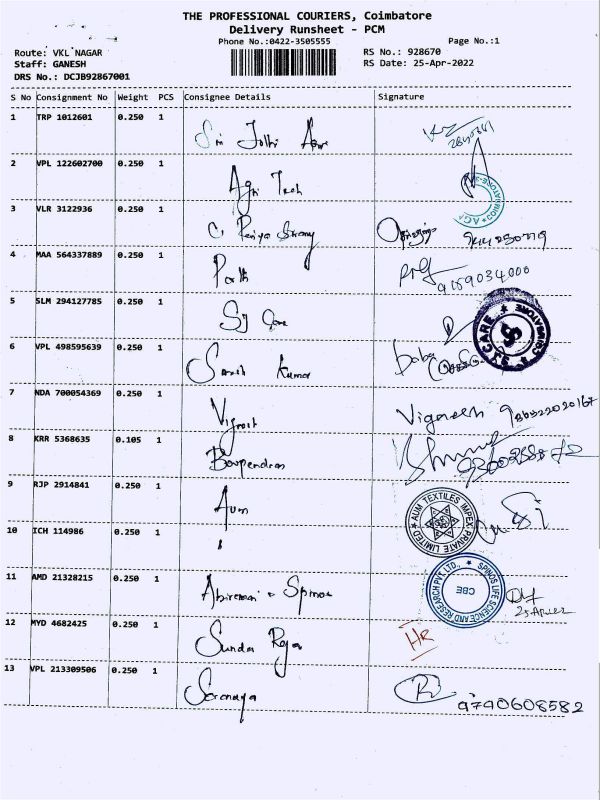 THE PROFESSIONAL COURIERS, Coimbatore
Delivery Runsheet - PCM
Phone No.:0422-3505555 Page No.:1
Route: VKL NAGAR RS No.: 928670
Staff: GANESH RS Date: 25-Apr-2022
DRS No.: DCJB92867001
S No Consignment No Weight PCS Consignee Details Signature
1 TRP 1012601 0.250 1 Sri Jothi
2 VPL 122602700 0.250 1 Agri Tech
3 VLR 3122936 0.250 1 C.
4 MAA 564337889 0.250 1 9159034000
5 SLM 294127785 0.250 1 SJ Care S.J CARE
6 VPL 498595639 0.250 1 Kumar
7 NDA 700054369 0.250 1 Vignesh Vignesh
8 KRR 5368635 0.105 1 Boopendran
9 RJP 2914841 0.250 1 Aum AUM TEXTILES IMPEX PRIVATE LIMITED
10 ICH 114986 0.250 1
11 AMD 21328215 0.250 1 Abirami & Spinos SPINOS LIFE SCIENCE AND RESEARCH PVT. LTD., CBE
12 MYD 4682425 0.250 1 Sundar Raja HR
13 VPL 213309506 0.250 1 Saranaya 9740608582